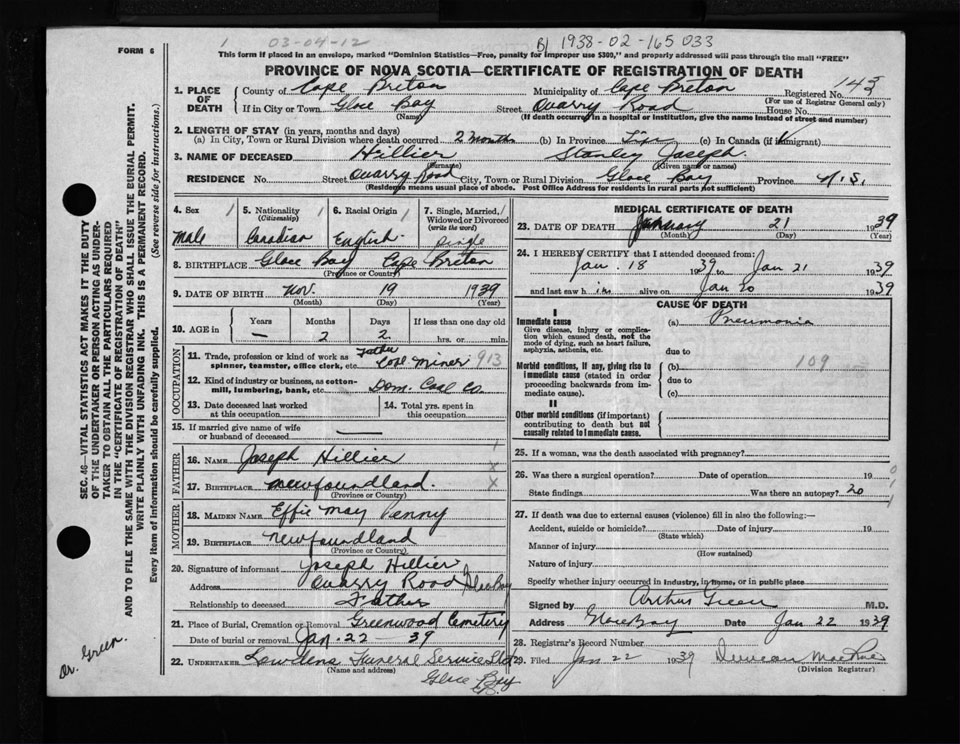 1 03-04-12 B) 1938-02-165 033
FORM 6
This form if placed in an envelope, marked "Dominion Statistics—Free, penalty for improper use $300," and properly addressed will pass through the mail "FREE"
PROVINCE OF NOVA SCOTIA—CERTIFICATE OF REGISTRATION OF DEATH
1. PLACE OF DEATH County of Cape Breton Municipality of Cape Breton Registered No. 143
(For use of Registrar General only)
If in City or Town Glace Bay Street Quarry Road House No.
(Name) (If death occurred in a hospital or institution, give the name instead of street and number)
2. LENGTH OF STAY (in years, months and days)
(a) In City, Town or Rural Division where death occurred 2 months (b) In Province Life (c) In Canada (if immigrant)
3. NAME OF DECEASED Hillier Stanley Joseph
(Surname) (Given name or names)
RESIDENCE No. Street Quarry Road City, Town or Rural Division Glace Bay Province N.S.
(Residence means usual place of abode. Post Office Address for residents in rural parts not sufficient)
4. Sex 1 5. Nationality 1 6. Racial Origin 1 7. Single, Married, Widowed or Divorced
(Citizenship) (write the word)
Male Canadian English Single
8. BIRTHPLACE Glace Bay Cape Breton
(Province or Country)
9. DATE OF BIRTH Nov. 19 1939
(Month) (Day) (Year)
10. AGE in Years Months Days If less than one day old
— 2 2 hrs. or min.
OCCUPATION
11. Trade, profession or kind of work as spinner, teamster, office clerk, etc. Father Coal Miner 913
12. Kind of industry or business, as cotton-mill, lumbering, bank, etc. Dom. Coal Co.
13. Date deceased last worked at this occupation
14. Total yrs. spent in this occupation
15. If married give name of wife or husband of deceased —
FATHER
16. Name Joseph Hillier
17. Birthplace Newfoundland
(Province or Country)
MOTHER
18. Maiden Name Effie May Penny
19. Birthplace Newfoundland
(Province or Country)
20. Signature of informant Joseph Hillier
Address Quarry Road Glace Bay
Relationship to deceased Father
21. Place of Burial, Cremation or Removal Greenwood Cemetery
Date of burial or removal Jan. 22 - 39
22. UNDERTAKER Funeral Service Ltd
(Name and address)
Glace Bay
MEDICAL CERTIFICATE OF DEATH
23. DATE OF DEATH January 21 1939
(Month) (Day) (Year)
24. I HEREBY CERTIFY that I attended deceased from:
Jan. 18 1939 to Jan 21 1939
and last saw him alive on Jan 20 1939
CAUSE OF DEATH
I
Immediate cause (a) Pneumonia
Give disease, injury or complication which caused death, not the mode of dying, such as heart failure, asphyxia, asthenia, etc.
due to
Morbid conditions, if any, giving rise to immediate cause (stated in order proceeding backwards from immediate cause).
(b) 109
due to
(c)
II
Other morbid conditions (if important) contributing to death but not causally related to immediate cause.
25. If a woman, was the death associated with pregnancy?
26. Was there a surgical operation? Date of operation 19
State findings Was there an autopsy?
27. If death was due to external causes (violence) fill in also the following:—
Accident, suicide or homicide? Date of injury 19
(State which)
Manner of injury
(How sustained)
Nature of injury
Specify whether injury occurred in industry, in home, or in public place
Signed by Arthur Green M.D.
Address Glace Bay Date Jan 22 1939
28. Registrar's Record Number
29. Filed Jan 22 1939 Duncan MacRae
(Division Registrar)
SEC. 46—VITAL STATISTICS ACT MAKES IT THE DUTY
OF THE UNDERTAKER OR PERSON ACTING AS UNDER-
TAKER TO OBTAIN ALL THE PARTICULARS REQUIRED
IN THE "CERTIFICATE OF REGISTRATION OF DEATH"
AND TO FILE THE SAME WITH THE DIVISION REGISTRAR WHO SHALL ISSUE THE BURIAL PERMIT.
WRITE PLAINLY WITH UNFADING INK. THIS IS A PERMANENT RECORD.
Every item of information should be carefully supplied. (See reverse side for instructions.)
Dr. Green.